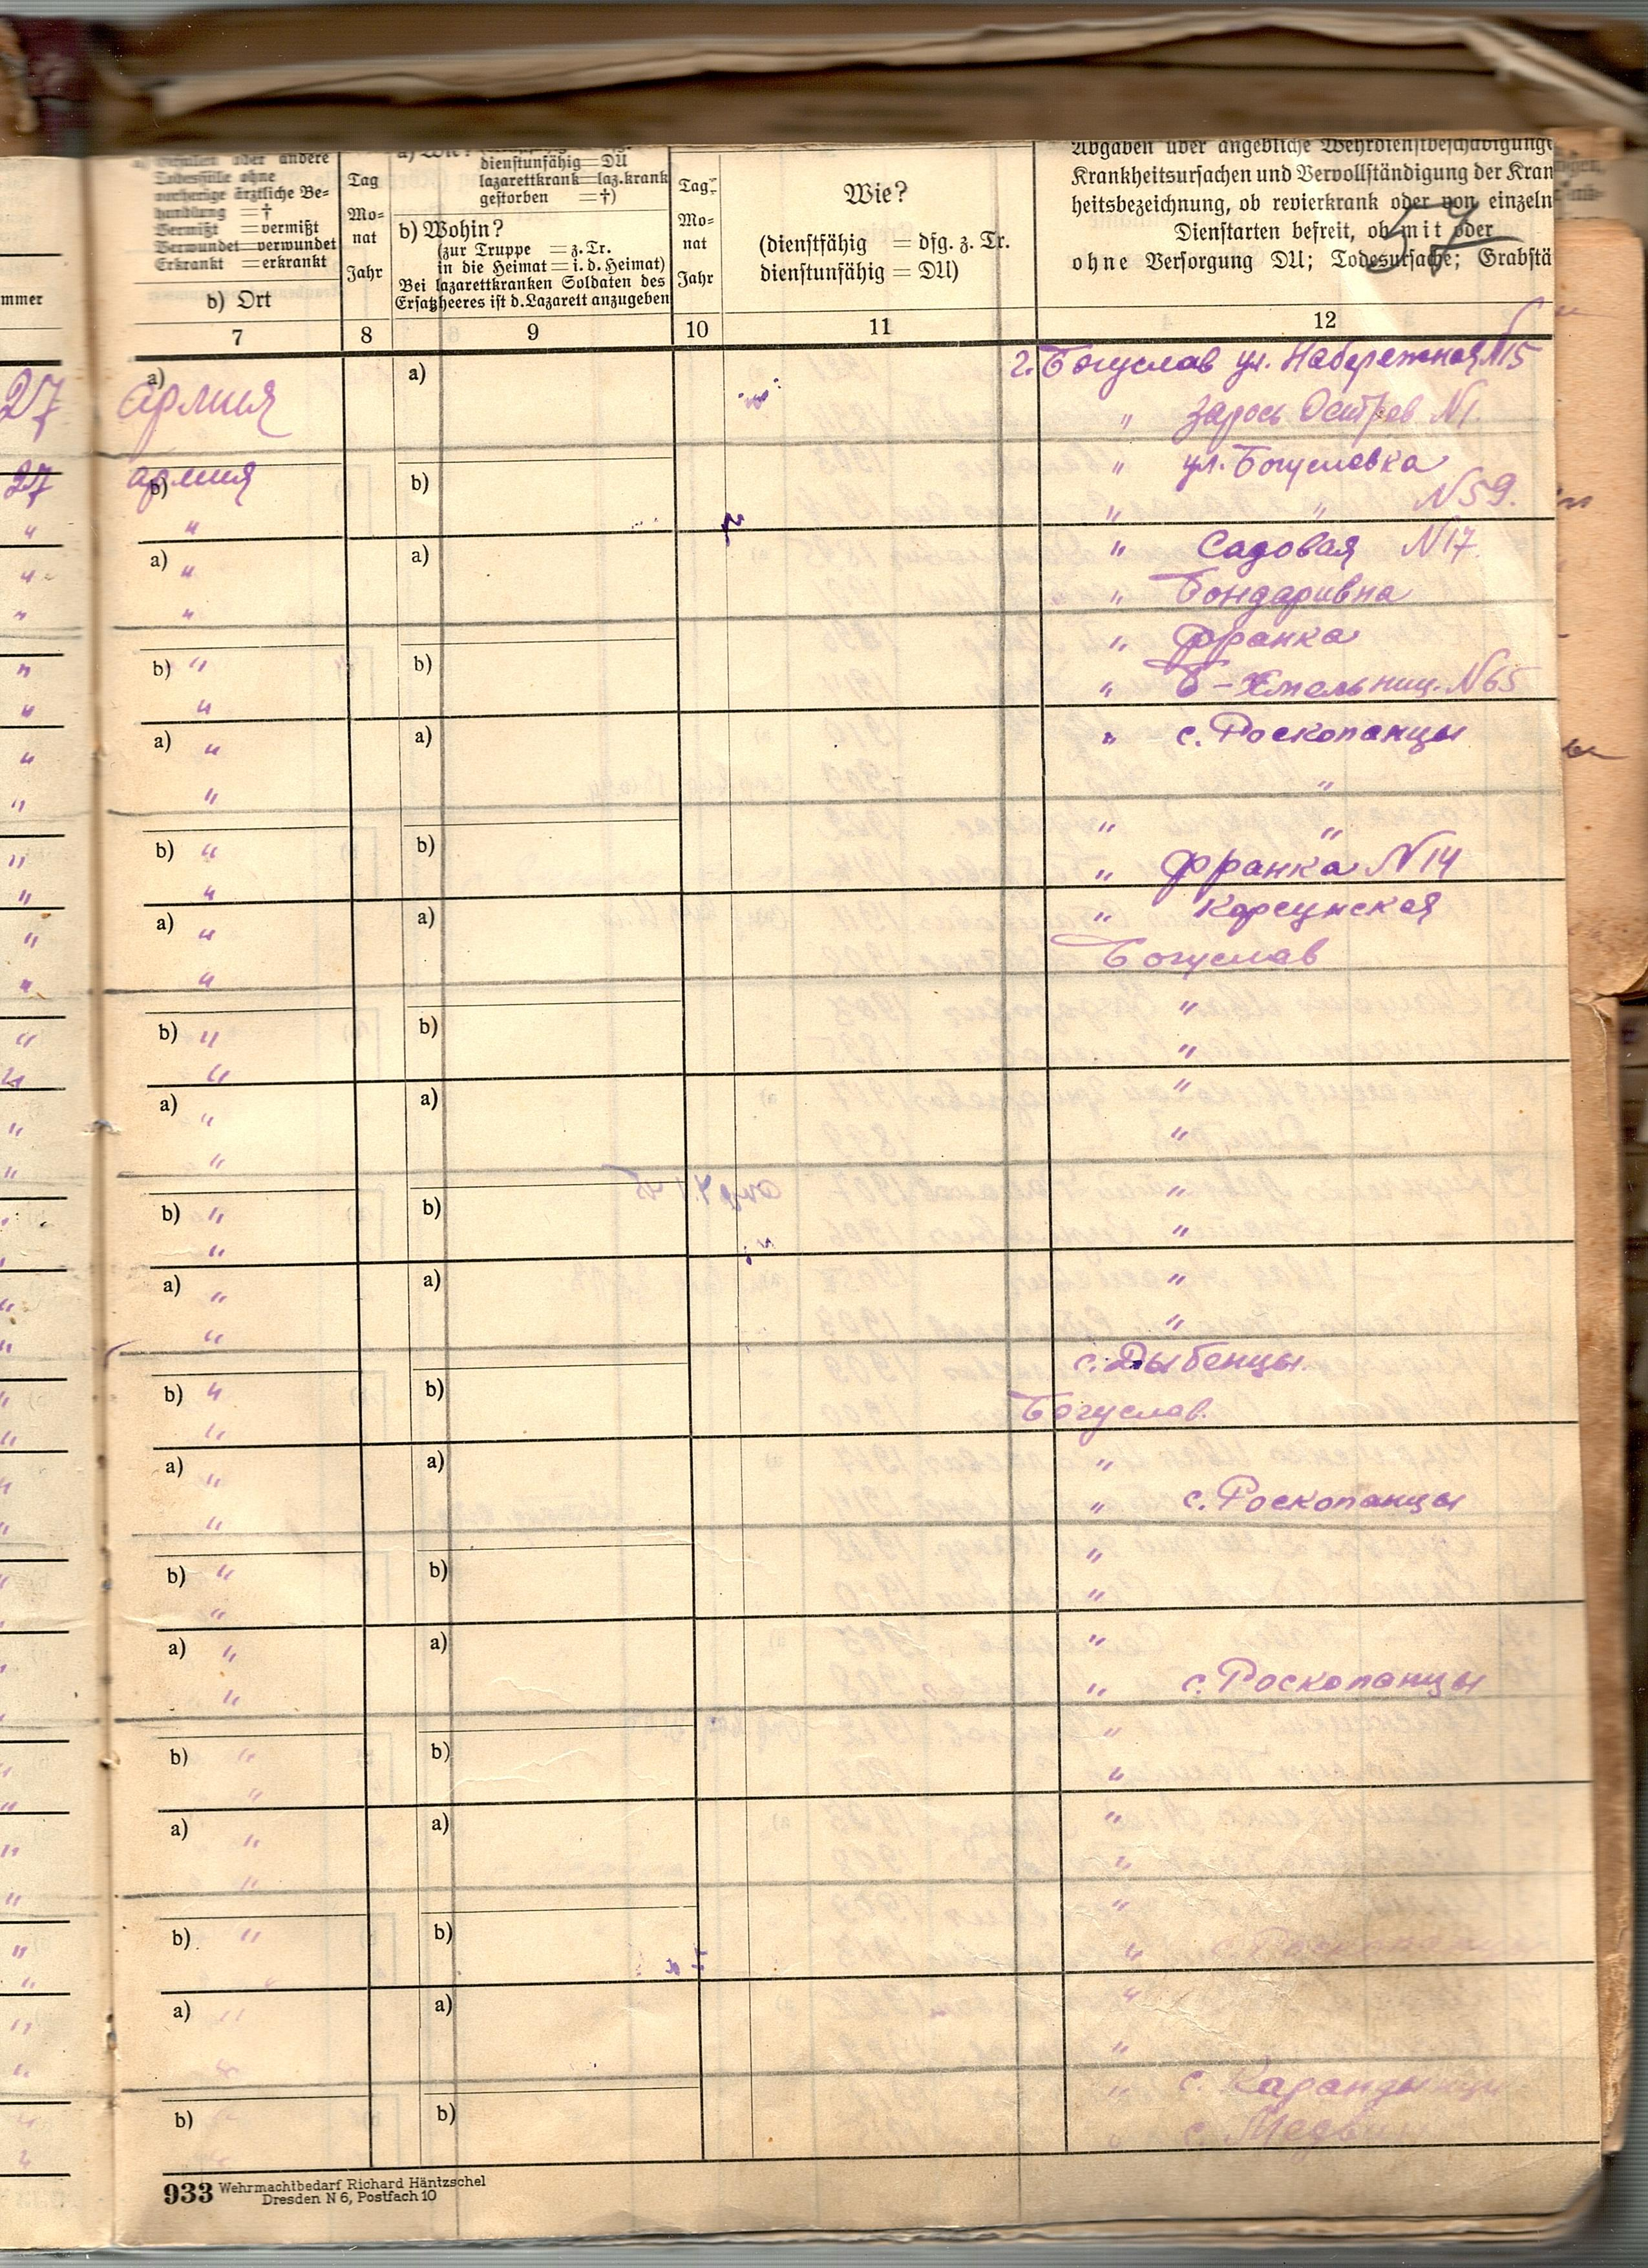 a) Gefallen oder andere
Todesfälle ohne
vorherige ärztliche Be-
handlung = †
Vermißt = vermißt
Verwundet = verwundet
Erkrankt = erkrankt
b) Ort
Tag
Mo-
nat
Jahr
a) Wie?
dienstunfähig = DU
lazarettkrank = laz.krank
gestorben = †)
b) Wohin?
(zur Truppe = z. Tr.
in die Heimat = i. d. Heimat)
Bei lazarettkranken Soldaten des
Ersatzheeres ist d. Lazarett anzugeben
Tag
Mo-
nat
Jahr
Wie?
(dienstfähig = dfg. z. Tr.
dienstunfähig = DU)
Abgaben über angebliche Wehrdienstbeschädigunge
Krankheitsursachen und Vervollständigung der Kran
heitsbezeichnung, ob revierkrank oder von einzeln
Dienstarten befreit, ob mit oder
ohne Versorgung DU; Todesursache; Grabstä
57
mmer
7 8 9 10 11 12
27 a) армия a) г. Богуслав ул. Набережная N15
" Зарось Остров N1.
27 армия " ул. Богуславка
" b) " b) " " N59.
" a) " a) " Садовая N17
" " " Бондаривна
" b) " b) " Франка
" " " Б-Хмельниц. N65
" a) " a) " с. Роскопанцы
" " "
" b) " b) " "
" " " Франка N14
" a) " a) " Корсунская
" " Богуслав
" b) " b) "
" " "
" a) " a) "
" " "
" b) " b) "
" " "
" a) " a) "
" " "
" b) " b) с. Дыбенцы.
" " Богуслав.
" a) " a) "
" " " с. Роскопанцы
" b) " b) "
" " "
" a) " a) "
" " " с. Роскопанцы
" b) " b) "
" " "
" a) " a) "
" " "
" b) " b) "
" " " с. Роскопанцы
" a) " a) "
" " "
" b) " b) " с.
" " " с.
933 Wehrmachtbedarf Richard Häntzschel
Dresden N 6, Postfach 10